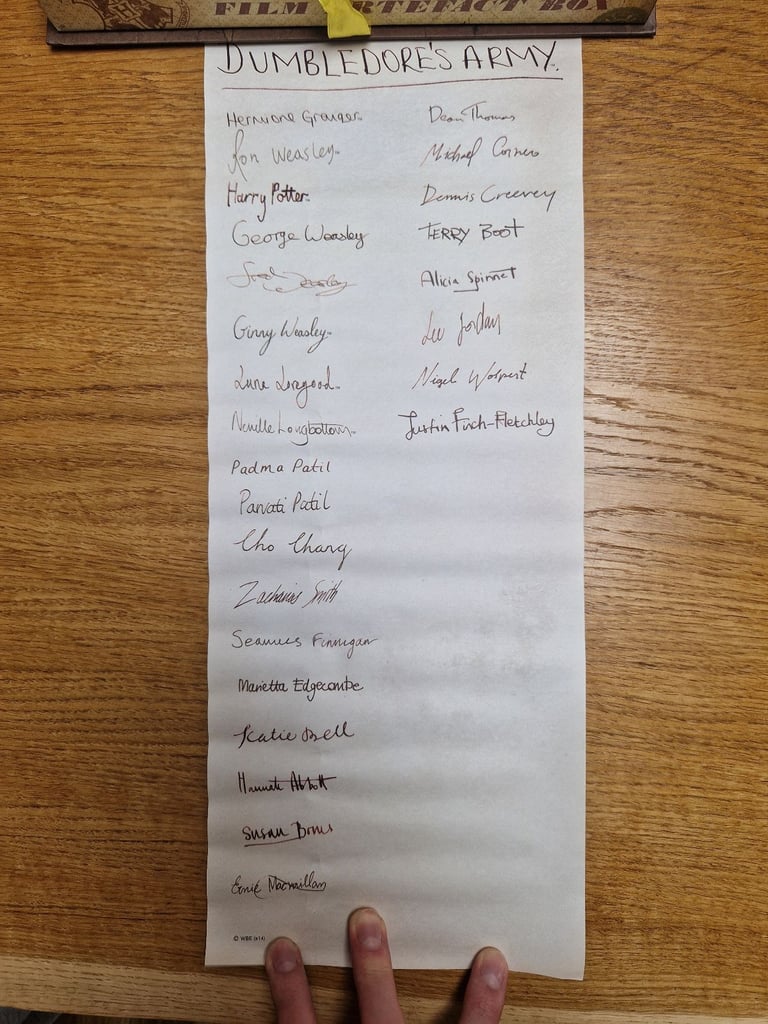 FILM ARTEFACT BOX
DUMBLEDORE'S ARMY™
Hermione Granger™
Ron Weasley™
Harry Potter™
George Weasley
Fred Weasley
Ginny Weasley™
Luna Lovegood™
Neville Longbottom™
Padma Patil
Parvati Patil
Cho Chang
Zacharias Smith
Seamus Finnigan
Marietta Edgecombe
Katie Bell
Hannah Abbott
Susan Bones
Ernie Macmillan
Dean Thomas
Michael Corner
Dennis Creevey
TERRY BOOT
Alicia Spinnet
Lee Jordan
Nigel Wolpert
Justin Finch-Fletchley
© WBEI (s14)